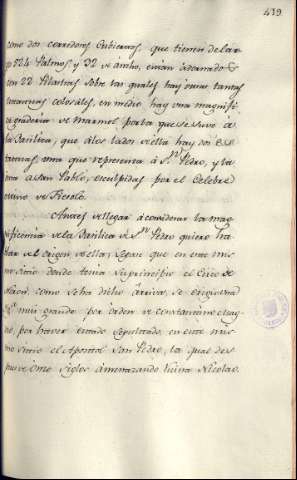 439
como dos corredores Cubiertos, que tienen de lar-
go 524 Palmos y 32 de ancho, estan adornados
con 22 Pilastras sobre las quales hay otras tantas
estatuas colosáles, en medio hay una magnifi-
ca graderia de Marmol por la que se sube à
la Basilica, que à los lados de ella hay dos es-
tatuas, una que representa à Sn. Pedro, y la
otra a San Pablo, esculpidas por el Celebre
Mino de Fiesole.
Antes de llegar à considerar la mag-
nificencia de la Basilica de Sn. Pedro quiero ha-
blar del origen de ella; Sepan que en este mis-
mo sitio donde tenia su principio el Circo de
Neron, como se ha dicho arriva, se erigio una
muy grande por orden de Constantino el mag-
no, por haver estado sepultado, en este mis-
mo Sitio el Apostol San Pedro, la qual des-
pues de onze siglos amenazando ruina Nicolao